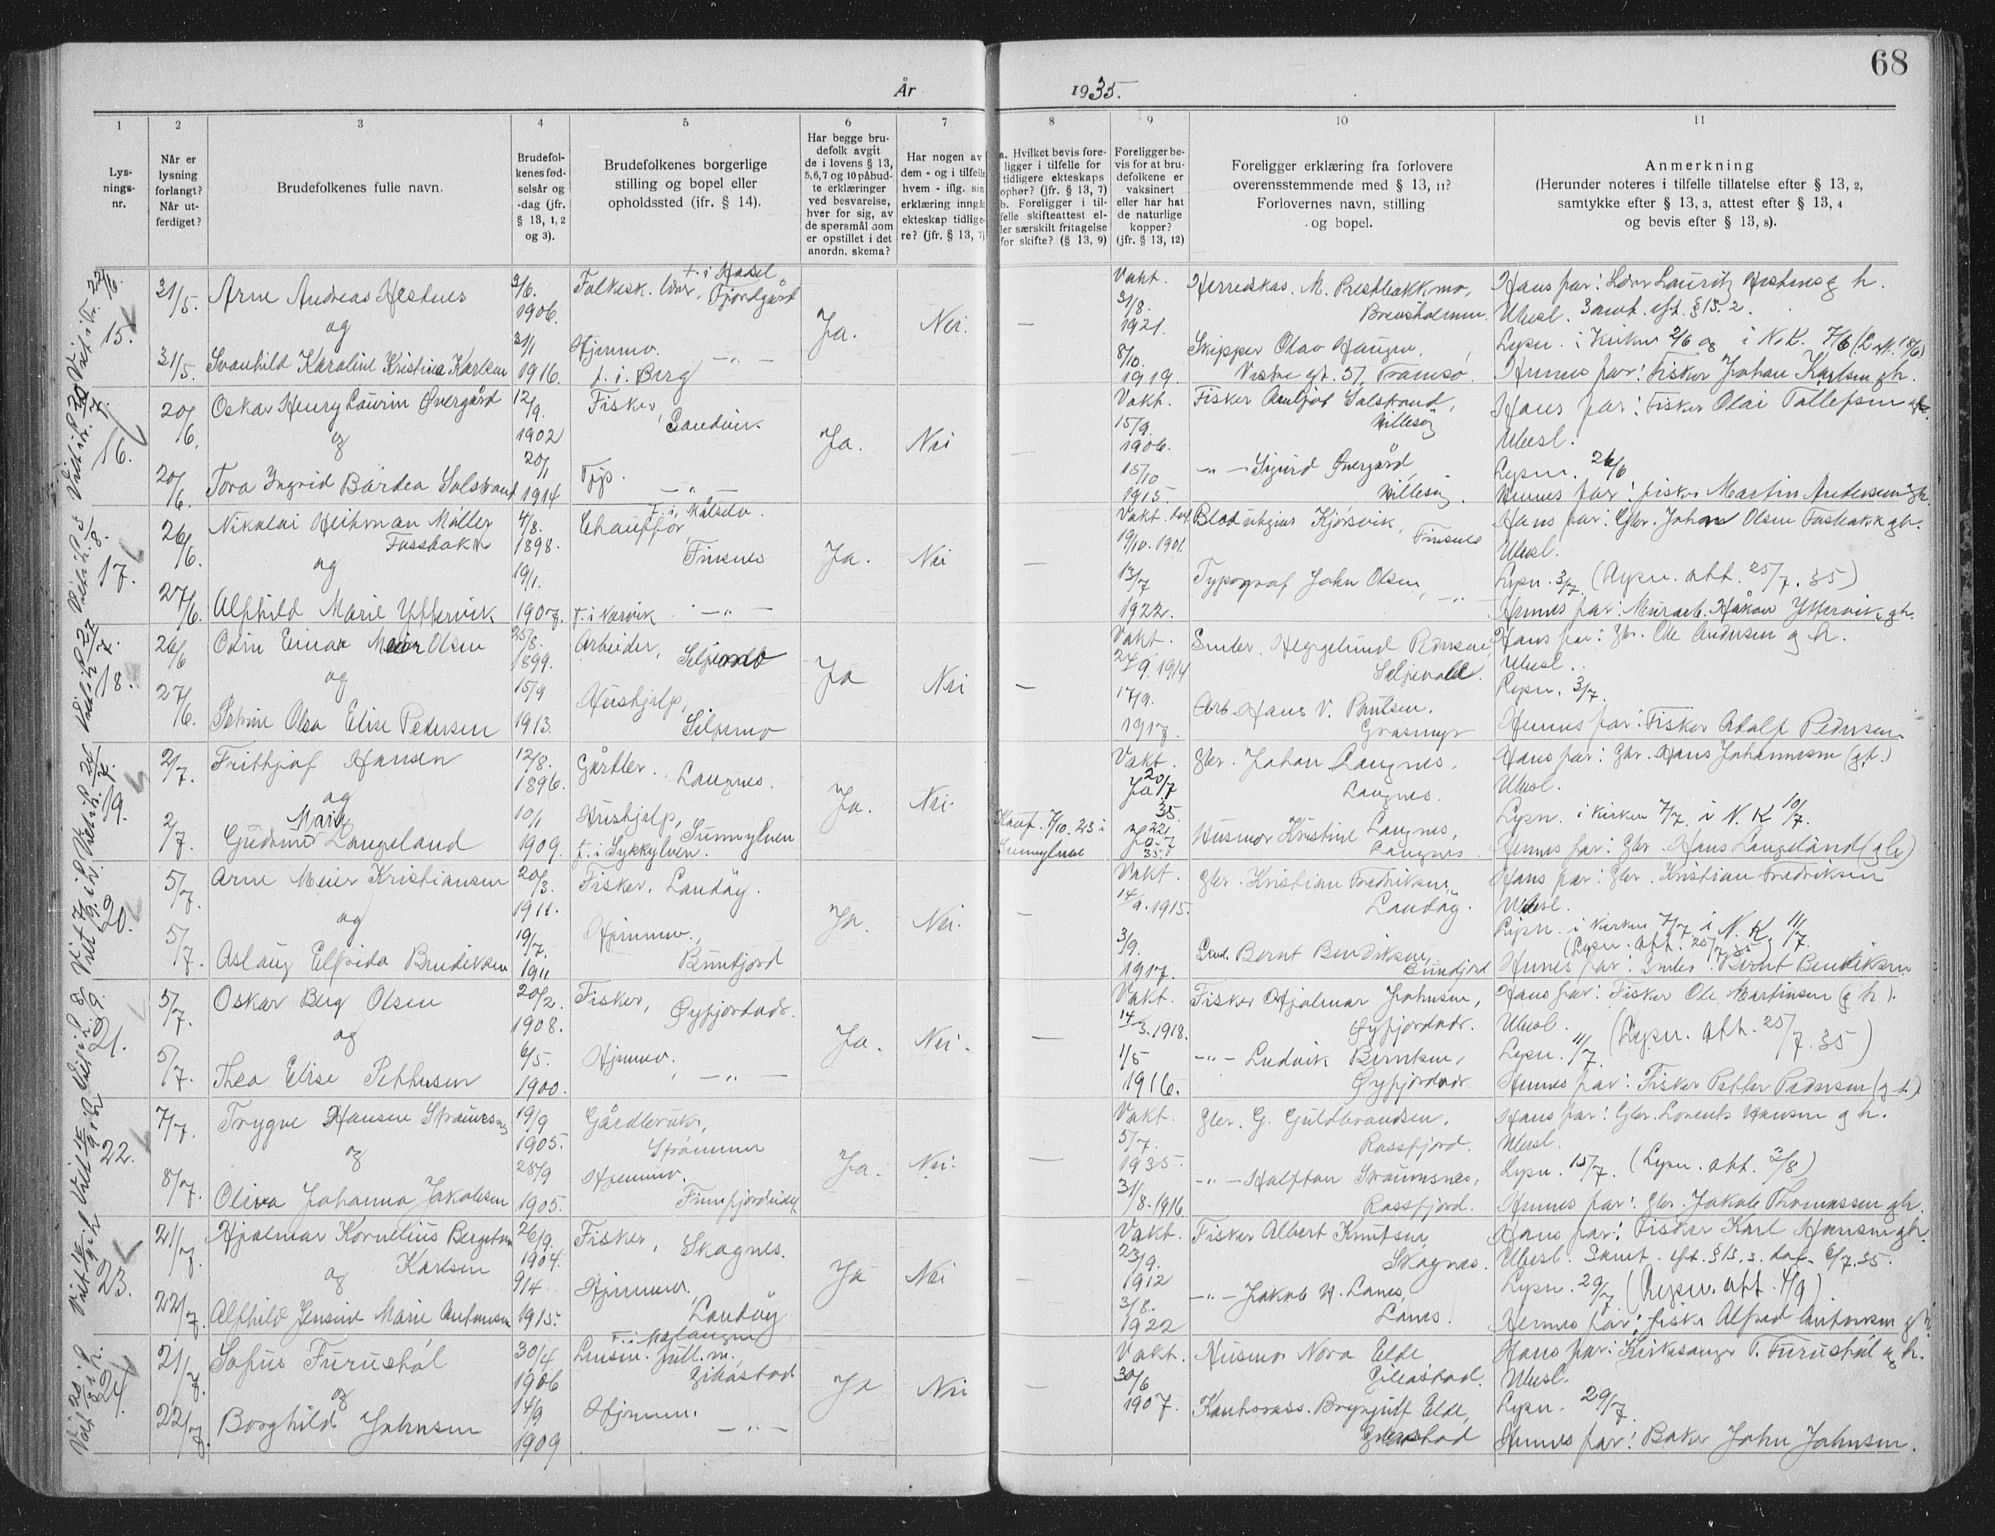 68
År 1935.
1 2 3 4 5 6 7 8 9 10 11
Lys-
nings-
nr.
Når er
lysning
forlangt?
Når ut-
ferdiget?
Brudefolkenes fulle navn.
Brudefol-
kenes fød-
selsår og
-dag (jfr.
§ 13, 1, 2
og 3).
Brudefolkenes borgerlige
stilling og bopel eller
opholdssted (jfr. § 14).
Har begge bru-
defolk avgit
de i lovens § 13,
5,6,7 og 10 påbud-
te erklæringer
ved besvarelse,
hver for sig, av
de spørsmål som
er opstillet i det
anordn. skema?
Har nogen av
dem - og i tilfelle
hvem - iflg. sin
erklæring inngå
ekteskap tidlige-
re? (jfr. § 13, 7)
a. Hvilket bevis fore-
ligger i tilfelle for
tidligere ekteskaps
ophør? (jfr. § 13, 7)
b. Foreligger i til-
felle skifteattest el-
ler særskilt fritagelse
for skifte? (§ 13, 9)
Foreligger be-
vis for at bru-
defolkene er
vaksinert
eller har hat
de naturlige
kopper?
(jfr. § 13, 12)
Foreligger erklæring fra forlovere
overensstemmende med § 13, 11?
Forlovernes navn, stilling
og bopel.
Anmerkning
(Herunder noteres i tilfelle tillatelse efter § 13, 2,
samtykke efter § 13, 3, attest efter § 13, 4
og bevis efter § 13, 8).
15.
31/5. Arne Andreas Hestnes 2/6. 1906. f. i Hadsel Fjordgård
og Ja. Nei. —
31/5. Svanhild Karoline Kristina Karlsen 31/1 1916. Hjemmev. — " — f. i. Berg
Vakt. 3/8. 1921. Herredskas. M. Prestbakkmo,
8/10. 1919. Skipper Olav Haugen, Vestre gt. 51, Tromsø.
Hans far: Lærer Lauritz Hestnes g h.
Ubesl. Samt. eft. § 13. 2.
Lysn. i Kirken 2/6 og i N. K. 7/6
Hennes far: Fisker Johan Karlsen gh.
16.
20/6. Oskar Henry Laurin Øvergård 12/9. 1902 Fisker, Sandvik
og Ja. Nei —
20/6. Tora Ingrid Bårdea Solstrand 20/1 1914 Tjp. — " —
Vakt. 15/9. 1906. Fisker Solstrand, Hillesøy
15/10 1915. — " — Sigurd Øvergård, Hillesøy.
Hans far: Fisker Olai Tollefsen gh.
Ubesl.
Lysn. 26/6
Hennes far: fisker Martin Andersen gh.
17.
26/6. Nikolai Heitman Møller Fossbakk 4/8. 1898. f. i. Målselv. Chauffør Finsnes
og Ja. Nei —
27/6. Alfhild Marie Yttervik 19/1. 1907. f. i Narvik — " —
Vakt. 19/10. 1901. Bladutgiver Kjørsvik, Finsnes
13/7 1922. Typograf John Olsen, — " —
Hans far: Gbr. Johan Olsen Fosbakk gh.
Ubesl.
Lysn. 3/7. (Lysn. att. 25/7. 35)
Hennes far: Murarb. Håkon Yttervik gh.
18.
26/6 Odin Einar Meier Olsen 25/8. 1899. Arbeider, Seljemo
og Ja Nei —
27/6. Petrine Olea Elise Pedersen 15/9 1913. Hushjelp, Seljemo
Vakt. 27/9. 1914 Snider. Hegelund Seljevold.
17/9. 1917. Arb. Hans V. Paulsen. Grasmyr
Hans far: Gbr. Ole Andersen g h.
Ubesl.
Lysn. 3/7.
Hennes far: Fisker Adolf Pedersen
19.
2/7. Frithjof Hansen 12/8. 1896. Gårdbr. Laugnes.
og Ja. Nei.
2/7. Gudrun Marie Langeland 10/1 1909. Hushjelp, Sunnylven f. i Sykkylven.
Vakt. Ja 20/7 35. Gbr. Johan Laugnes, Laugnes.
Husmor Kristine Laugnes, Laugnes.
Hans far: Gbr. Hans Johannesen (gh.)
Ubesl.
Lysn. i Kirken 7/7. i N. K 10/7.
Hennes far: Gbr. Hans Langeland (gh)
20.
5/7. Arne Meier Kristiansen 20/3. 1911. Fisker, Laudøy.
og Ja. Nei. —
5/7. Aslaug Elfrida Bendiksen 19/7. 1911 Hjemmev., Bunkfjord
Vakt. 14/9. 1915. Gbr. Kristian Fredriksen, Laudøy.
3/9. 1917. Bernt Bendiksen,
Hans far: Gbr. Kristian Fredriksen
Ubesl.
Lysn. i Kirken 7/7. i N. K. 11/7.
(Lysn. att. 25/7. 35
Hennes far: Smed. Bernt Bendiksen
21.
5/7. Oskar Berg Olsen 20/2. 1908. Fisker, Øyfjordvær.
og Ja. Nei. —
5/7. Thea Elise Pettersen 6/5. 1900. Hjemmev. — " —
Vakt. 14/3. 1918. Fisker Hjalmar Johnsen, Øyfjordvær.
1/5 1916. — " — Ludvik Berntsen, Øyfjordvær
Hans far: Fisker Ole Martinsen (g h).
Ubesl.
Lysn. 11/7. (Lysn. att. 25/7. 35)
Hennes far: Fisker Petter Pedersen (gh)
22.
7/7. Trygve Hansen Straumsnes 19/9 1905. Gårdbruker, Strømmen
og Ja. Nei. —
8/7. Oliva Johanna Jakobsen 25/9 1905. Hjemmev. Finnfjordeidet
Vakt. 5/7. 1935 Gbr. G. Guldbrandsen, Rossfjord.
31/8. 1916. — " — Halfdan Straumsnes, Rossfjord.
Hans far: Gbr. Lorents Hansen g h.
Ubesl.
Lysn. 15/7. (Lysn. att. 2/8)
Hennes far: Gbr. Jakob Thomassen gh.
23.
21/7. Hjalmar Kornelius Bergeton Karlsen 26/9. 1904. Fisker, Skognes.
og Ja Nei —
22/7. Alfhild Jensine Marie Antonsen 9/4. 1915. Hjemmev. Laudøy
Vakt. 23/9. 1912 Fisker Albert Knutsen Skognes.
3/8. 1922 — " — Jakob H. Lanes, Lanes.
Hans far: Fisker Karl Hansen gh.
Ubesl. Samt. eft. § 13. 3. dat. 6/7. 35.
Lysn. 29/7 (Lysn. att. 4/9).
Hennes far: fisker Alfred Antonsen gh.
24.
21/7. Sofus Furuhøl 30/4 1906 f. i Malangen Lensm. fullm. Gibostad
og Ja Nei —
22/7. Borghild Johnsen 14/9 1909 Hjemmev. — " —
Vakt. 30/6 1907. Husmor Nora Elde Gibostad.
Kontorass. Brynjulf Elde, Gibostad
Hans far: Kirkesanger T. Furuhøl g h.
Ubesl.
Lysn. 29/7.
Hennes far: Baker John Johnsen.